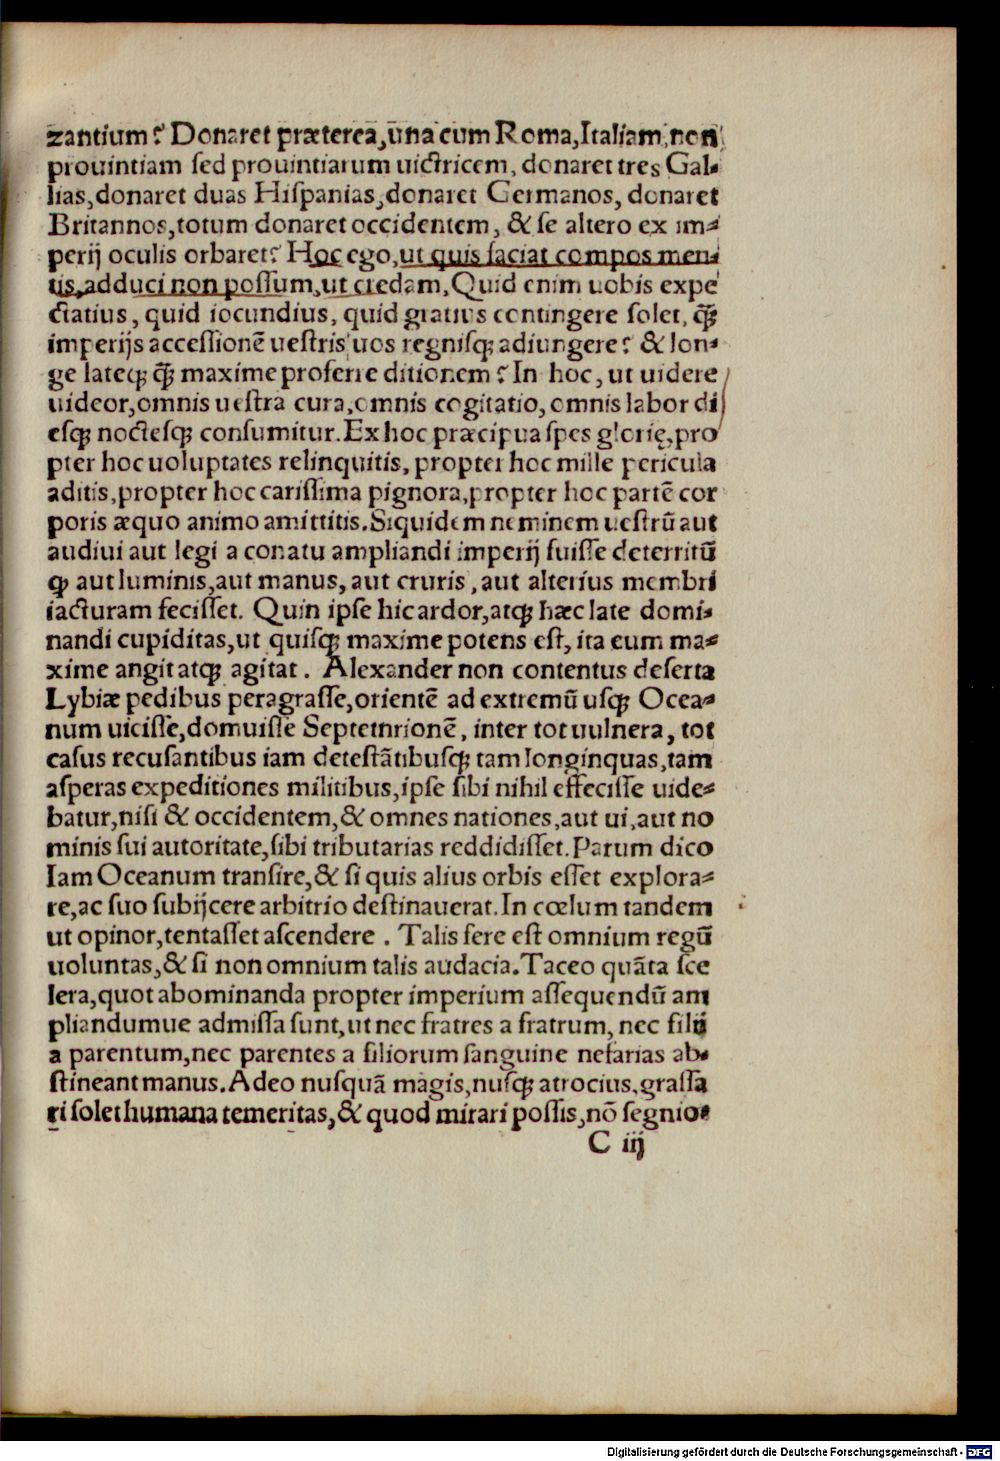 zantium? Donaret præterea, una cum Roma, Italiam, non
prouintiam sed prouintiarum uictricem, donaret tres Gal-
lias, donaret duas Hispanias, donaret Germanos, donaret
Britannos, totum donaret occidentem, & se altero ex im-
perij oculis orbaret? Hoc ego, ut quis faciat compos men-
tis, adduci non possum, ut credam, Quid enim uobis expe
ctatius, quid iocundius, quid gratius contingere solet, q̃
imperijs accessionē uestris uos regnisq; adiungere? & lon-
ge lateq; q̃ maxime proferre ditionem? In hoc, ut uidere
uideor, omnis uestra cura, omnis cogitatio, omnis labor di
esq; noctesq; consumitur. Ex hoc præcipua spes glorię, pro
pter hoc uoluptates relinquitis, propter hoc mille pericula
aditis, propter hoc carissima pignora, propter hoc partē cor
poris æquo animo amittitis. Siquidem neminem uestrū aut
audiui aut legi a conatu ampliandi imperij fuisse deterritū
ꝙ aut luminis, aut manus, aut cruris, aut alterius membri
iacturam fecisset. Quin ipse hic ardor, atq; hæc late domi-
nandi cupiditas, ut quisq; maxime potens est, ita eum ma-
xime angit atq; agitat. Alexander non contentus deserta
Lybiæ pedibus peragrasse, orientē ad extremū usq; Ocea-
num uicisse, domuisse Septemrionē, inter tot uulnera, tot
casus recusantibus iam detestātibusq; tam longinquas, tam
asperas expeditiones militibus, ipse sibi nihil effecisse uide-
batur, nisi & occidentem, & omnes nationes, aut ui, aut no
minis sui autoritate, sibi tributarias reddidisset. Parum dico
Iam Oceanum transire, & si quis alius orbis esset explora-
re, ac suo subijcere arbitrio destinauerat. In cœlum tandem
ut opinor, tentasset ascendere. Talis fere est omnium regū
uoluntas, & si non omnium talis audacia. Taceo quāta sce
lera, quot abominanda propter imperium assequendū am
pliandumue admissa sunt, ut nec fratres a fratrum, nec filij
a parentum, nec parentes a filiorum sanguine nefarias ab-
stineant manus. Adeo nusquā magis, nusq; atrocius, grassa
ri solet humana temeritas, & quod mirari possis, nō segnio-
C iij
Digitalisierung gefördert durch die Deutsche Forschungsgemeinschaft - DFG